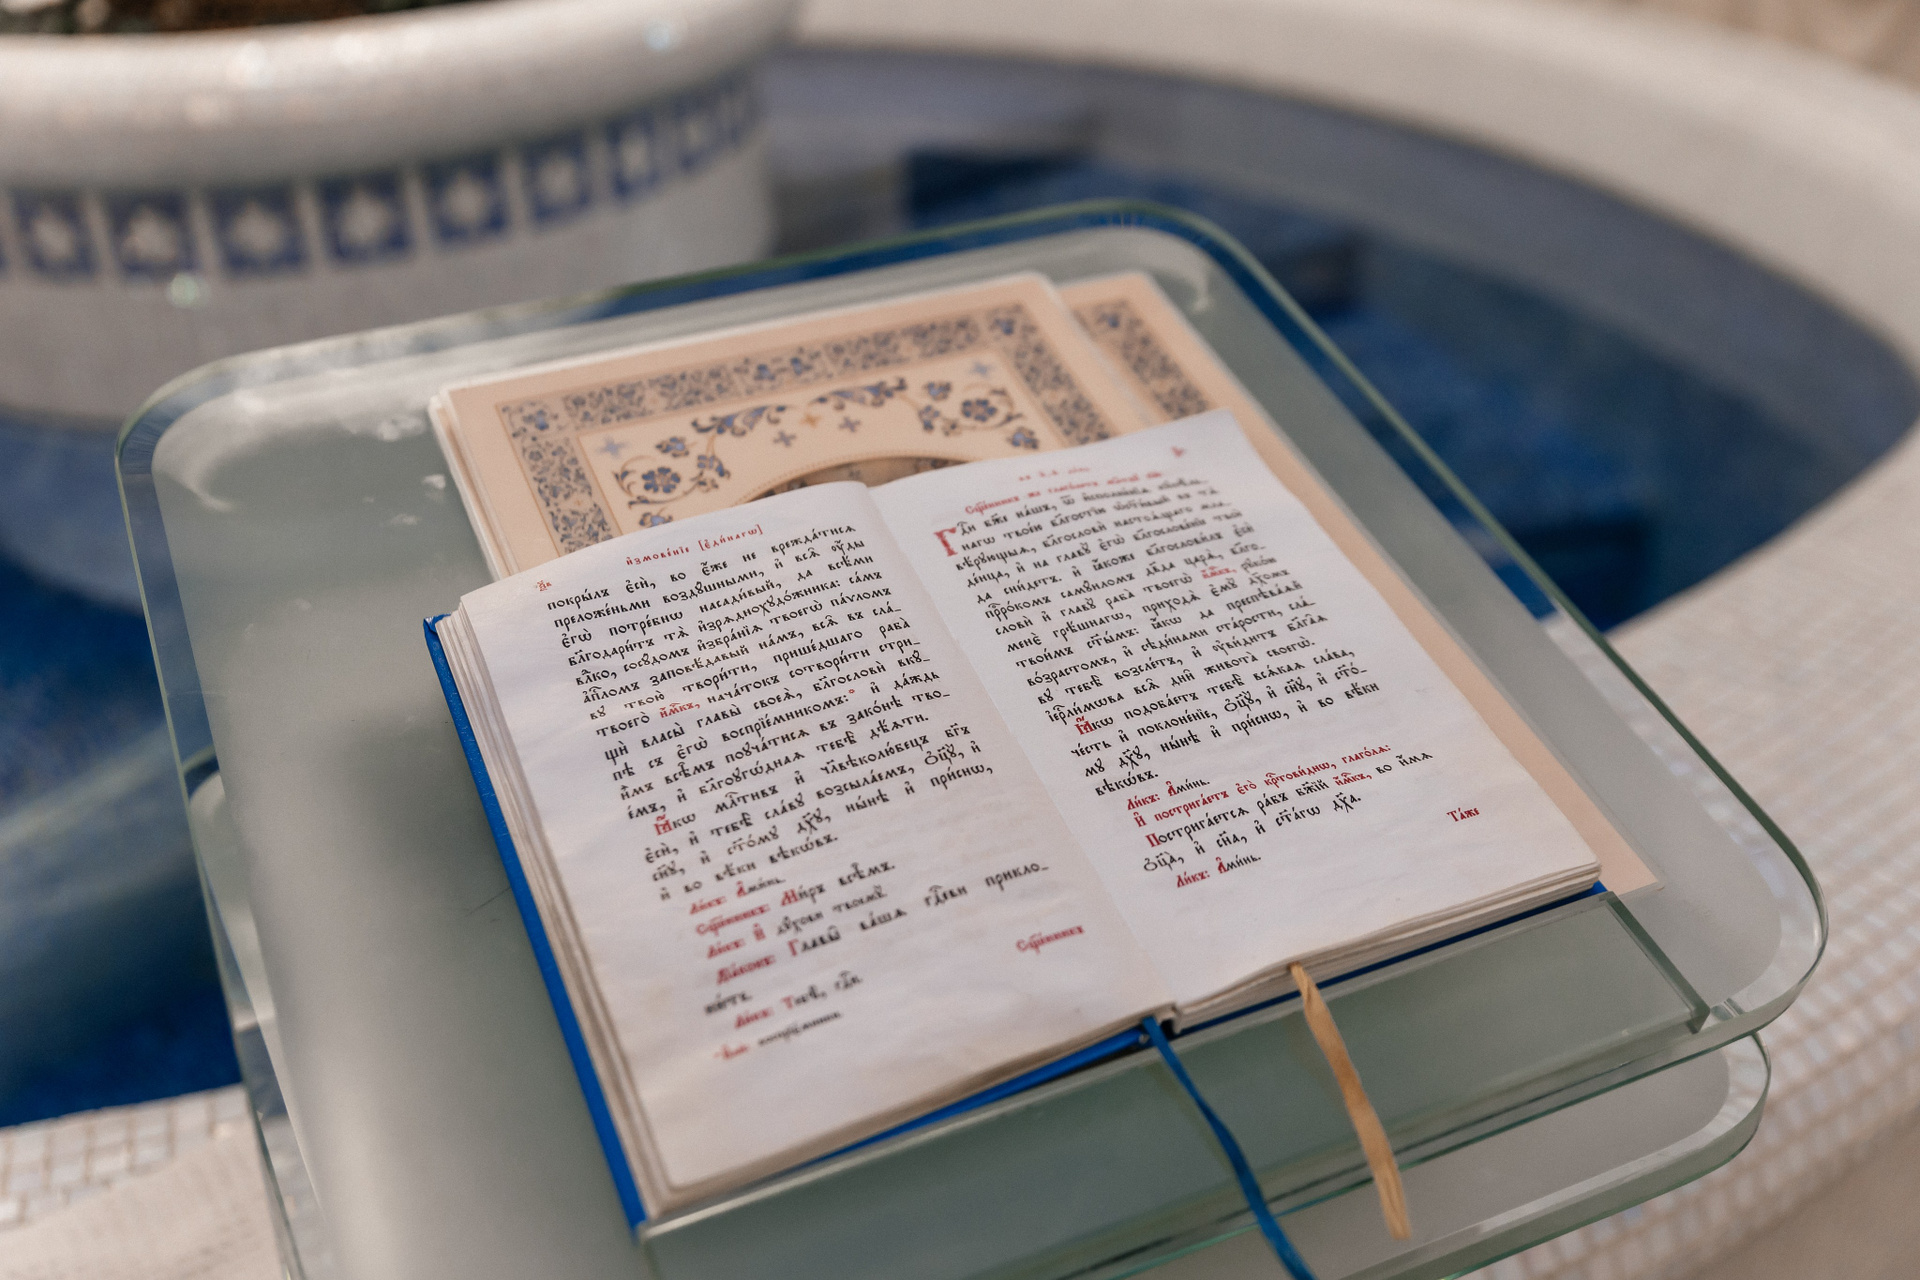 и҆змове́нїе [є҆ди́нагѡ]
покры́лъ є҆сѝ, во є҆́же не врежда́тисѧ
преложе́ньми возду́шными, и҆ всѧ̑ ѹ҆́ды
є҆гѡ̀ потре́бнѡ насади́вый, да всѣ́ми
благодари́тъ тѧ̀ и҆зрѧднохудо́жника: са́мъ
влⷣко, сосу́домъ и҆збра́нїѧ твоегѡ̀ па́ѵломъ
а҆пⷭ҇ломъ заповѣ́давый на́мъ, всѧ̑ въ сла́-
ву твою̀ твори́ти, прише́дшаго раба̀
твоего̀ и҆́м҃къ, нача́токъ сотвори́ти стри-
щѝ власы̀ главы̀ своеѧ̀, благословѝ вкꙋ́-
пѣ съ є҆гѡ̀ воспрїе́мникомъ: и҆ да́ждь
и҆̀мъ всѣ̑мъ поѹча́тисѧ въ зако́нѣ тво-
е́мъ, и҆ благоѹгѡ́днаѧ тебѣ̀ дѣ́ѧти.
Ꙗ҆́кѡ млⷭ҇тивъ и҆ чл҃вѣколю́бецъ бг҃ъ
є҆сѝ, и҆ тебѣ̀ сла́ву возсыла́емъ, ѻ҆ц҃у̀, и҆
сн҃у, и҆ ст҃о́му дх҃у, ны́нѣ и҆ при́снѡ,
и҆ во вѣ́ки вѣкѡ́въ.
Ли́къ: А҆ми́нь.
Сщ҃е́нникъ: Ми́ръ всѣ̑мъ.
Ли́къ: И҆ дꙋ́хови твоемꙋ̀.
Дїа́конъ: Главы̑ ва́шѧ гдⷭ҇еви прикло-
ни́те.
Ли́къ: Тебѣ̀, гдⷭ҇и.
Сщ҃е́нникъ
Гдⷭ҇и бж҃е на́шъ, ѿ и҆сполне́нїѧ
нагѡ твоею̀ бл҃гостїю
вѣ́рующыѧ, благословѝ настоѧ́щаго мла-
де́нца, и҆ на главу̀ є҆гѡ̀ благослове́нїе твоѐ
да сни́детъ. и҆ ꙗ҆́коже благослови́лъ є҆сѝ
прⷪ҇ро́комъ самꙋи́ломъ дв҃да царѧ̀, благо-
словѝ и҆ главу̀ раба̀ твоегѡ̀ и҆́м҃къ, рꙋко́ю
менє̀ грѣ́шнагѡ, приходѧ̀ є҆мꙋ̀ дх҃омъ
твои́мъ ст҃ы́мъ: ꙗ҆́кѡ да преспѣва́ѧй
во́зрастомъ, и҆ сѣди́нами ста́рости, сла́-
ву тебѣ̀ возсле́тъ, и҆ ѹ҆ви́дитъ блага̑ѧ
і҆ерⷭ҇ли́мѡва всѧ̑ дни̑ живота̀ своегѡ̀.
Ꙗ҆́кѡ подоба́етъ тебѣ̀ всѧ́каѧ сла́ва,
че́сть и҆ поклоне́нїе, ѻ҆ц҃у̀, и҆ сн҃у, и҆ ст҃о́-
му дх҃у, ны́нѣ и҆ при́снѡ, и҆ во вѣ́ки
вѣкѡ́въ.
Ли́къ: А҆ми́нь.
И҆ пострига́етъ є҆го̀ крⷭ҇тови́днѡ, глаго́лѧ:
Пострига́етсѧ ра́бъ бж҃їй и҆́м҃къ, во и҆́мѧ
ѻ҆ц҃а̀, и҆ сн҃а, и҆ ст҃а́гѡ дх҃а.
Ли́къ: А҆ми́нь.
Та́же